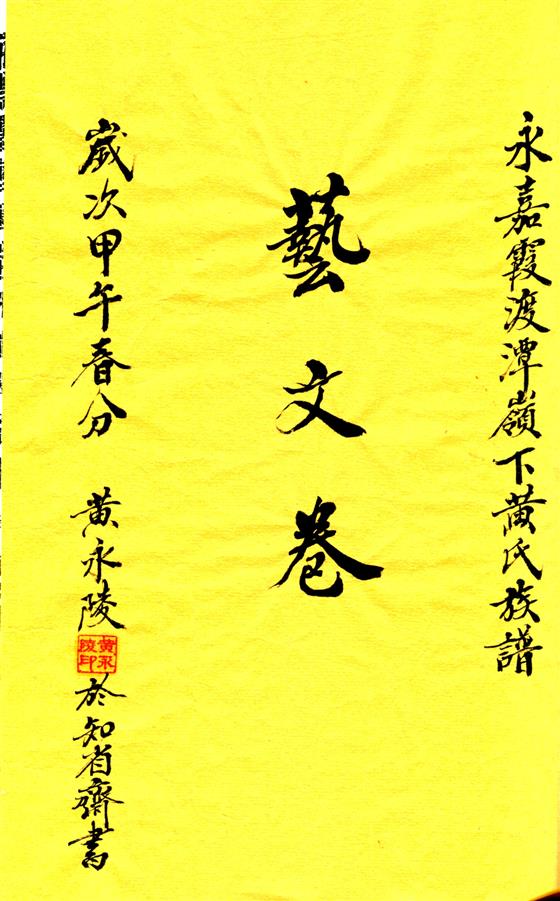 永嘉霞渡潭嶺下黄氏族譜
藝文卷
歲次甲午春分 黄永陵
黄永陵印
於知省齋書